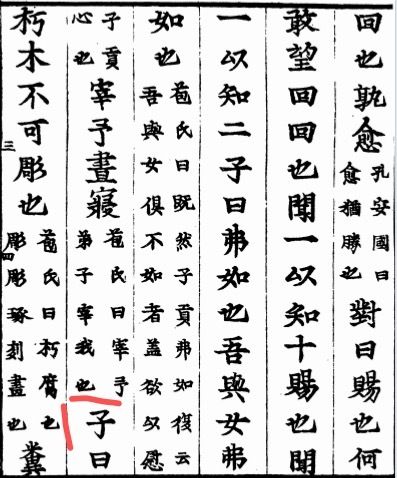 回也孰愈孔安國曰愈猶勝也對曰賜也何
敢望回回也聞一以知十賜也聞
一以知二子曰弗如也吾與女弗
如也苞氏曰既然子貢弗如復云吾與女俱不如者蓋欲以慰
子貢心也宰予晝寢苞氏曰宰予弟子宰我也子曰
朽木不可彫也苞氏曰朽腐也彫彫琢刻畫也糞
三
四